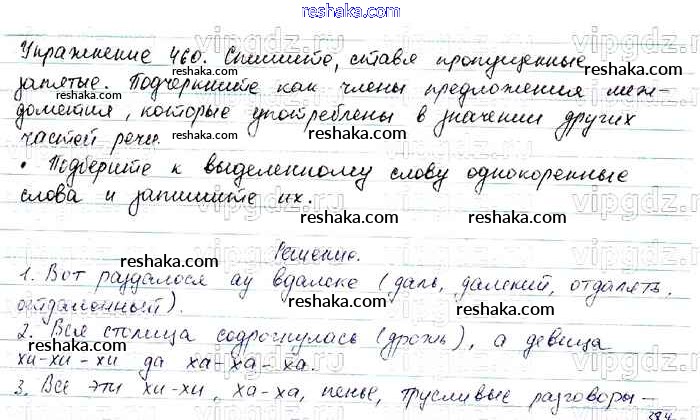 reshaka.com
Упражнение 460. Спишите, ставя пропущенные
запятые. Подчеркните как члены предложения меж-
дометия, которые употреблены в значении других
частей речи.
• Подберите к выделенному слову однокоренные
слова и запишите их.
Решение.
1. Вот раздалося ау вдалеке (даль, далекий, отдалять,
отдаленный).
2. Вся столица содрогнулась (дрожь), а девица
хи-хи-хи да ха-ха-ха.
3. Все эти хи-хи, ха-ха, пенье, трусливые разговоры –
384